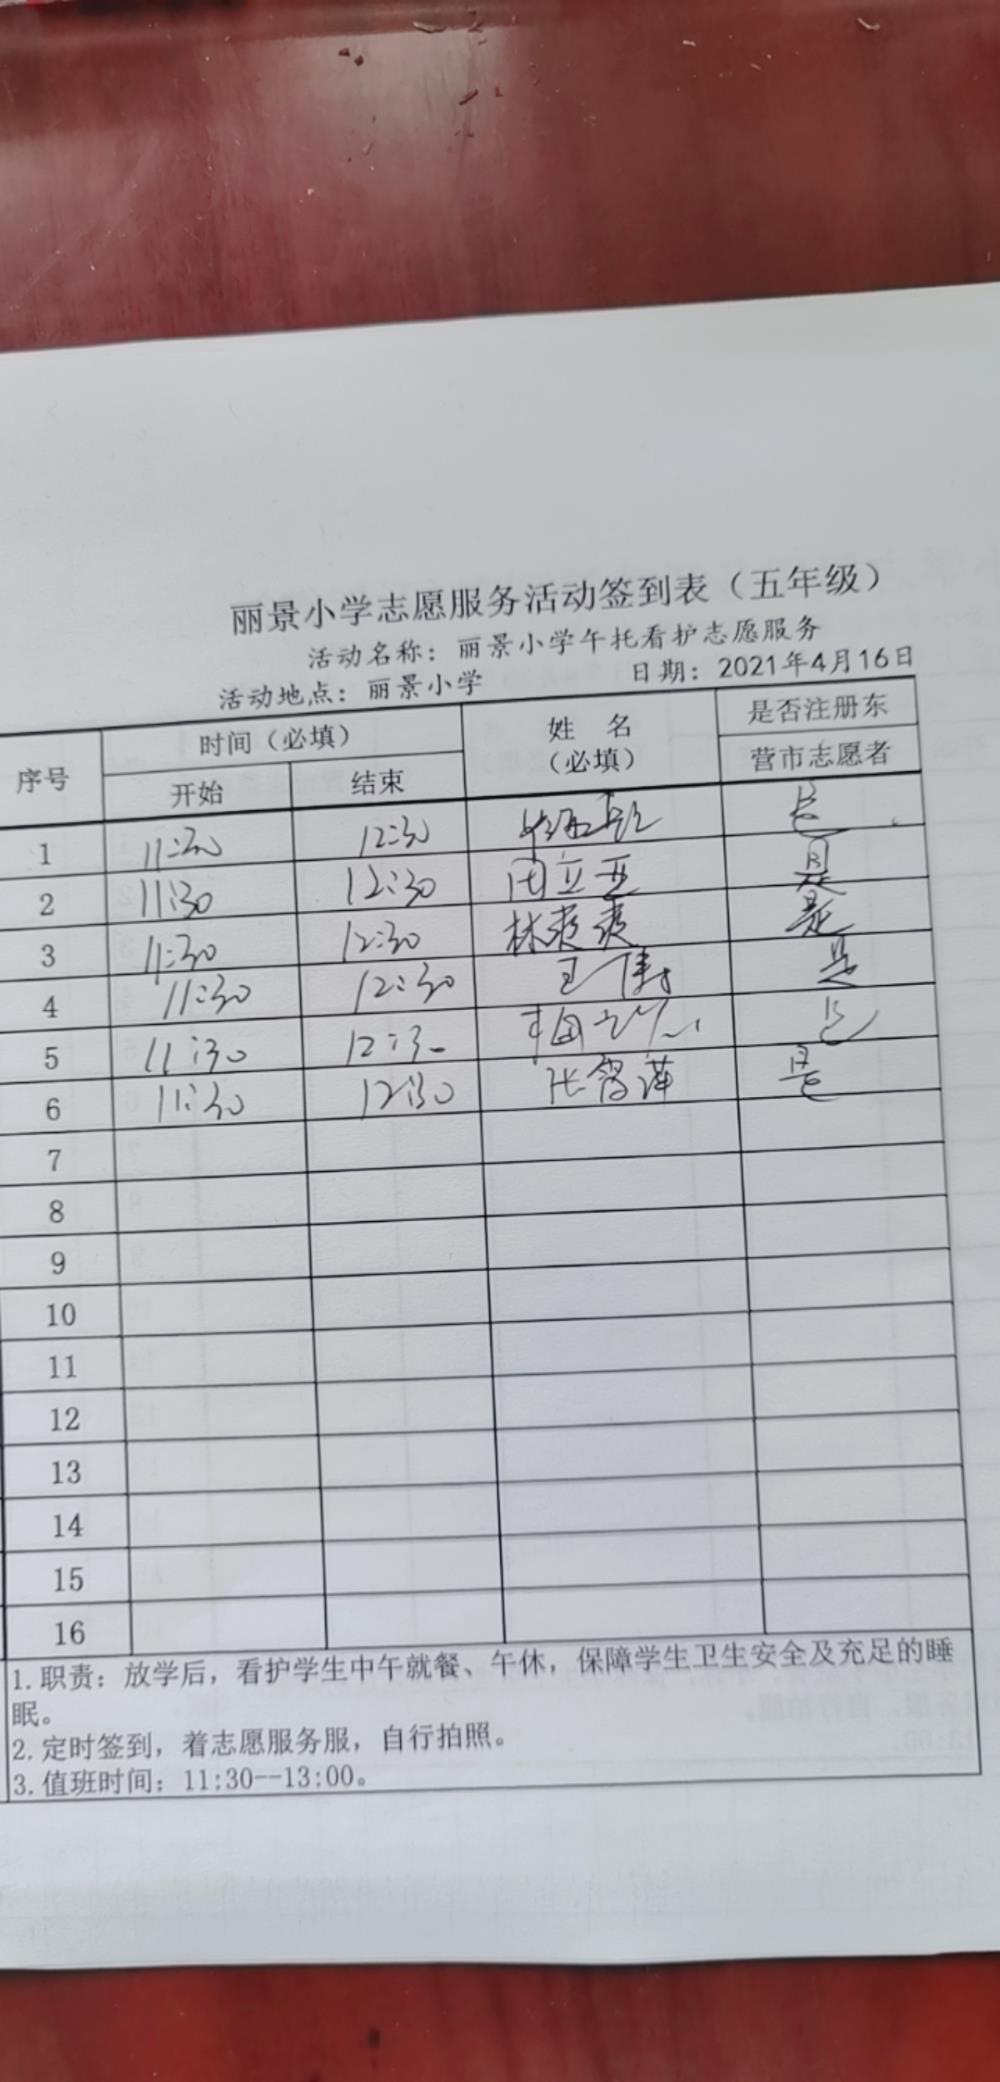 丽景小学志愿服务活动签到表（五年级）
活动名称：丽景小学午托看护志愿服务
活动地点：丽景小学 日期：2021年4月16日
序号 时间（必填） 姓 名（必填） 是否注册东营市志愿者
开始 结束
1 11:30 12:30 是
2 11:30 12:30 田立亚 是
3 11:30 12:30 林爽爽 是
4 11:30 12:30 王倩 是
5 11:30 12:30 是
6 11:30 12:30 张 萍 是
7
8
9
10
11
12
13
14
15
16
1.职责：放学后，看护学生中午就餐、午休，保障学生卫生安全及充足的睡
眠。
2.定时签到，着志愿服务服，自行拍照。
3.值班时间：11:30--13:00。